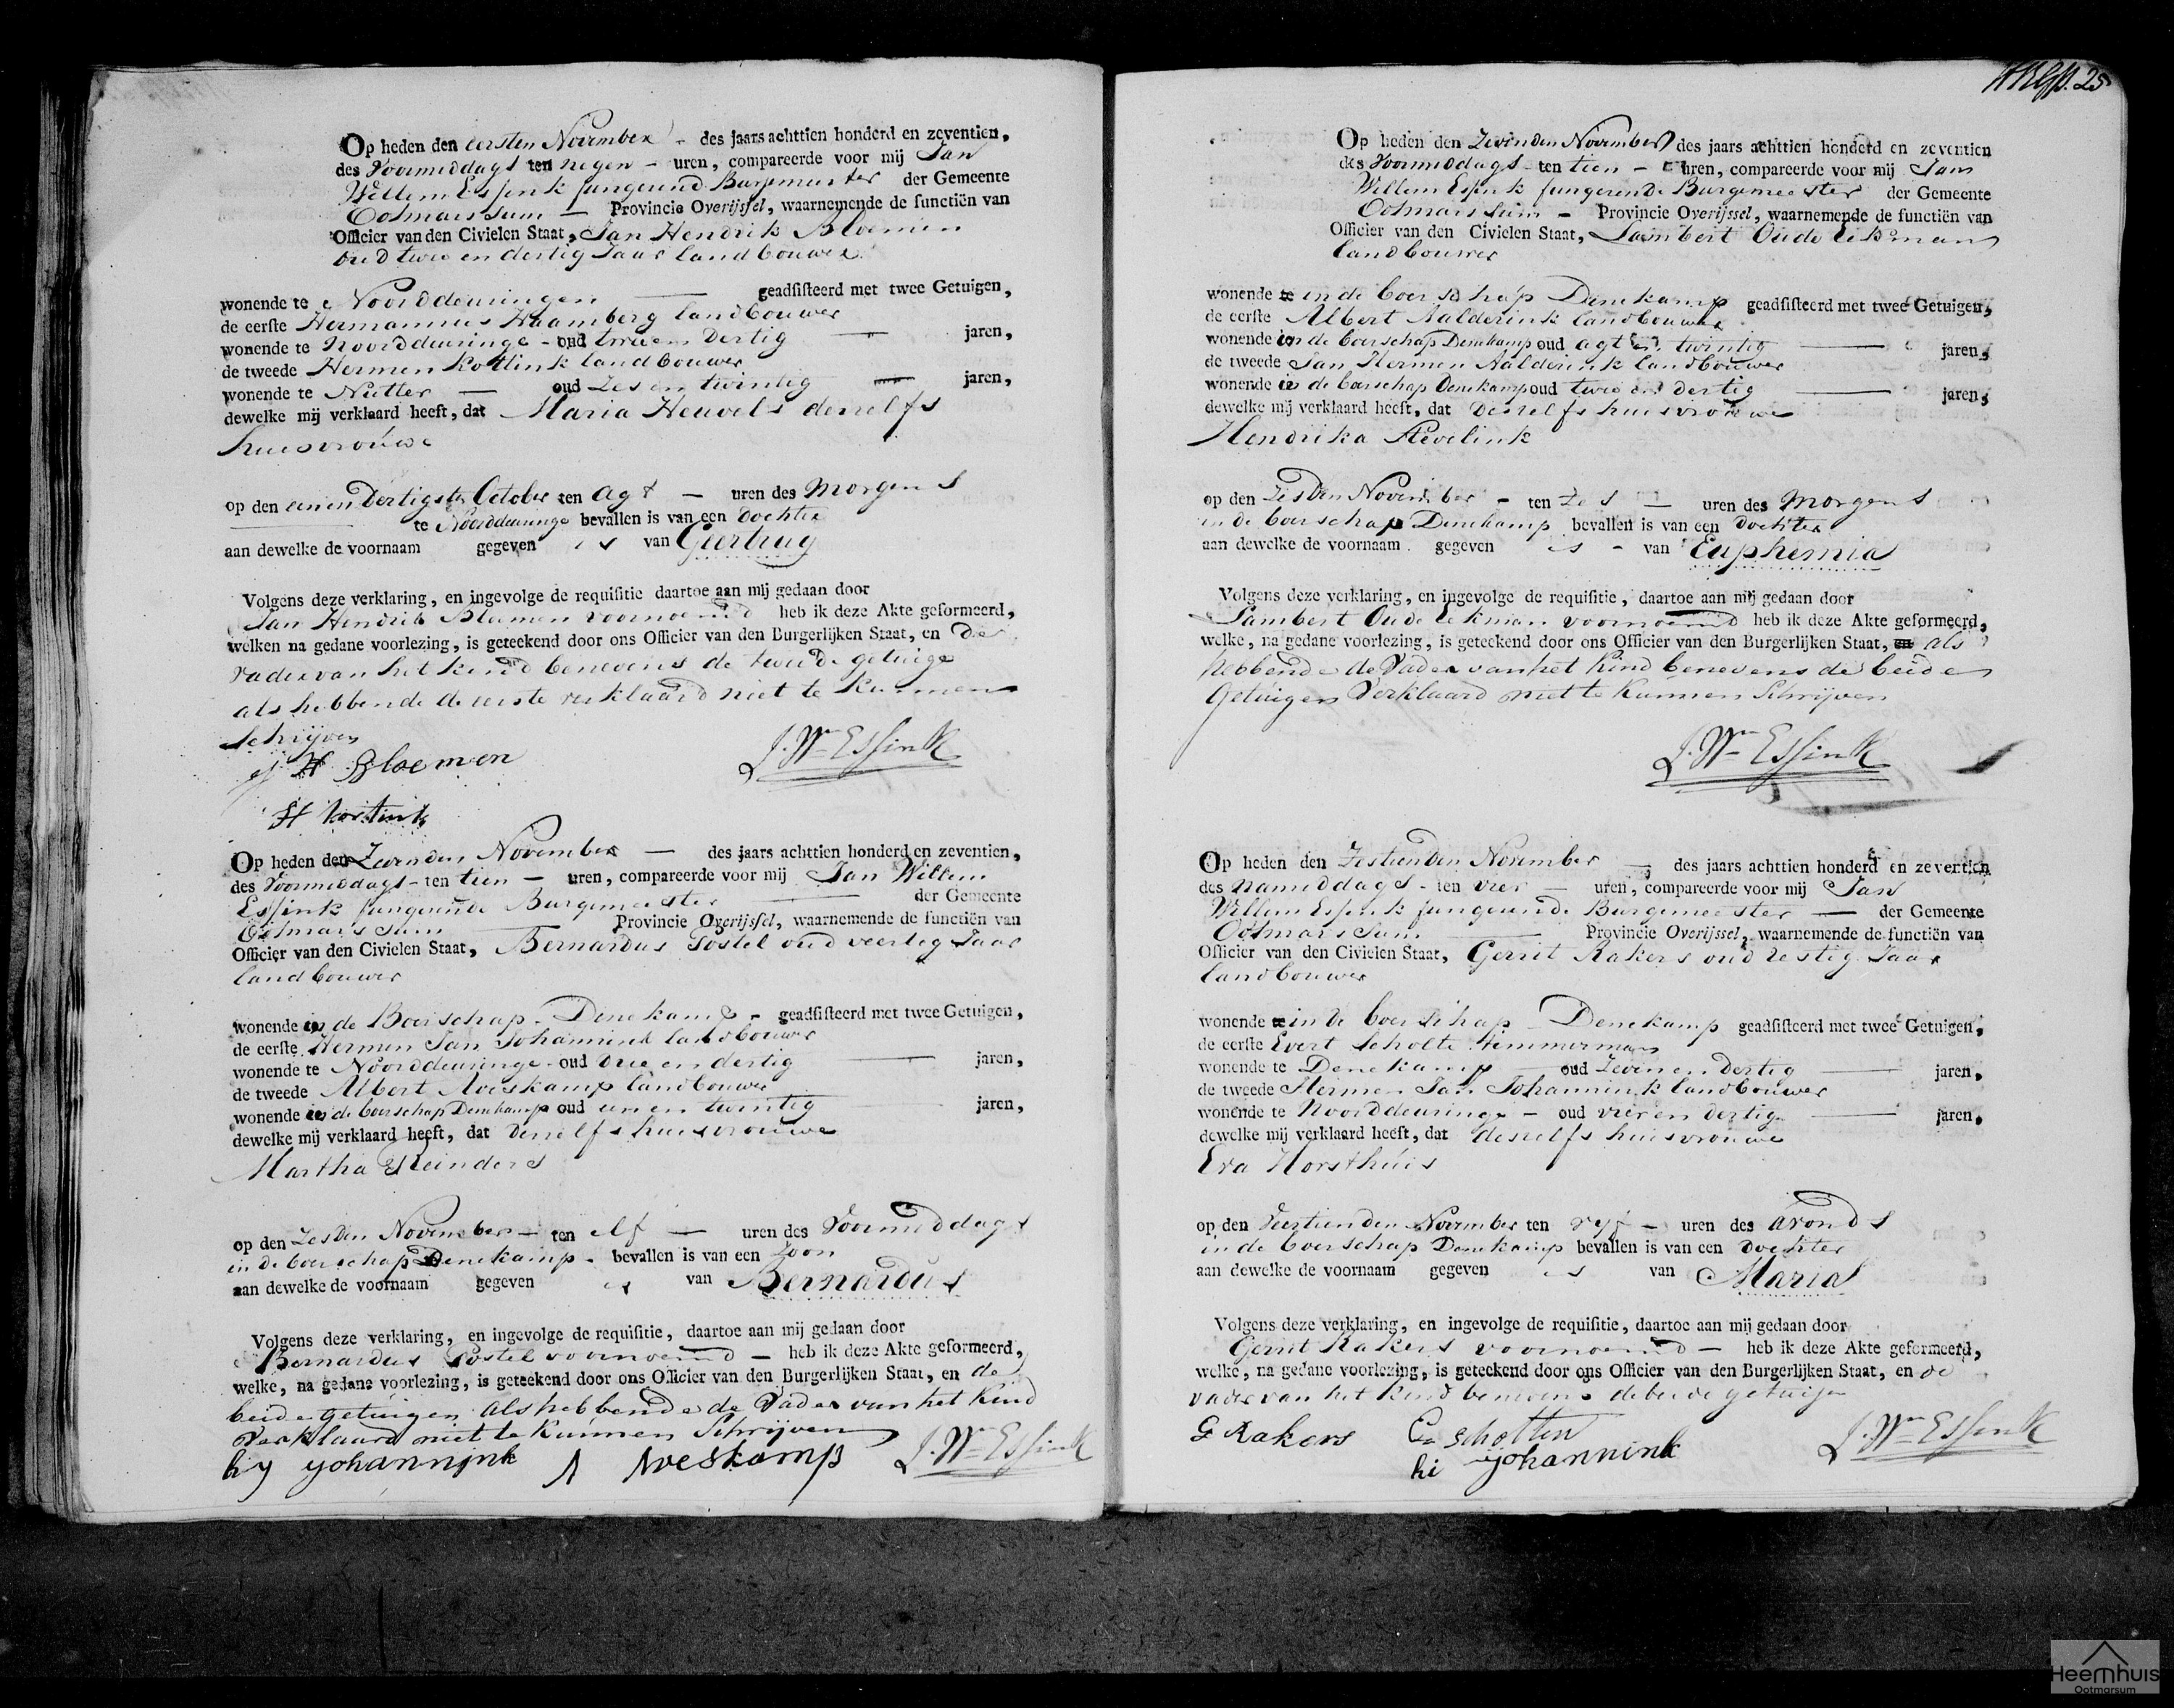 Op heden den eersten November - des jaars achttien honderd en zeventien,
des Voormiddags ten negen - uren, compareerde voor mij Jan
Willem Essink fungerend Burgemeester der Gemeente
Ootmarssum - Provincie Overijssel, waarnemende de functiën van
Officier van den Civielen Staat, Jan Hendrik Bloemen
oud twee en dertig Jaar landbouwer
wonende te Noorddeuringen — geadsisteerd met twee Getuigen,
de eerste Hermannus Haamberg landbouwer
wonende te Noorddeuringe - oud twee en dertig — jaren,
de tweede Hermen Kottink landbouwer
wonende te Nutter — oud Zes en twintig — jaren,
dewelke mij verklaard heeft, dat Maria Heuvels deszelfs
huisvrouwe
op den een en dertigste October ten agt — uren des Morgens
te Noorddeuringe bevallen is van een dochter
aan dewelke de voornaam gegeven is van Geertrug
Volgens deze verklaring, en ingevolge de requisitie daartoe aan mij gedaan door
Jan Hendrik Bloemen voornoemd heb ik deze Akte geformeerd,
welken na gedane voorlezing, is geteekend door ons Officier van den Burgerlijken Staat, en de
vader van het kind benevens de tweede getuige
als hebbende de eerste verklaard niet te kunnen
schrijven
J H Bloemen J. Wm Essink
H Kottink
Op heden den Zevenden November — des jaars achttien honderd en zeventien,
des Voormiddags - ten tien — uren, compareerde voor mij Jan Willem
Essink fungerende Burgemeester — der Gemeente
Ootmarssum Provincie Overijssel, waarnemende de functiën van
Officier van den Civielen Staat, Bernardus Postel oud veertig Jaar
landbouwer
wonende in de Boerschap Denekamp - geadsisteerd met twee Getuigen,
de eerste Hermen Jan Johannink landbouwer
wonende te Noorddeuringe - oud drie en dertig — jaren,
de tweede Albert Noeskamp landbouwer
wonende in de boerschap Denekamp oud een en twintig — jaren,
dewelke mij verklaard heeft, dat deszelfs huisvrouwe
Martha Reinders
op den Zesden November - ten elf — uren des Voormiddags
in de boerschap Denekamp - bevallen is van een Zoon
aan dewelke de voornaam gegeven is van Bernardus
Volgens deze verklaring, en ingevolge de requisitie, daartoe aan mij gedaan door
Bernardus Postel voornoemd — heb ik deze Akte geformeerd,
welke, na gedane voorlezing, is geteekend door ons Officier van den Burgerlijken Staat, en de
beide getuigen als hebbende de Vader van het Kind
verklaard niet te kunnen Schrijven
hj johannink A Noeskamp J. Wm Essink
25
Op heden den Zevenden November des jaars achttien honderd en zeventien
des Voormiddags - ten tien — uren, compareerde voor mij Jan
Willem Essink fungerende Burgemeester der Gemeente
Ootmarssum — Provincie Overijssel, waarnemende de functiën van
Officier van den Civielen Staat, Lambert Oude Eekman
landbouwer
wonende te in de boerschap Denekamp geadsisteerd met twee Getuigen,
de eerste Albert Aalderink landbouwer
wonende in de boerschap Denekamp oud agt en twintig — jaren,
de tweede Jan Hermen Aalderink landbouwer
wonende in de boerschap Denekamp oud twee en dertig — jaren,
dewelke mij verklaard heeft, dat deszelfs huisvrouwe
Hendrika Stevelink
op den Zesden November - ten Zes — uren des Morgens
in de boerschap Denekamp bevallen is van een dochter
aan dewelke de voornaam gegeven is - van Euphemia
Volgens deze verklaring, en ingevolge de requisitie, daartoe aan mij gedaan door
Lambert Oude Eekman voornoemd heb ik deze Akte geformeerd,
welke, na gedane voorlezing, is geteekend door ons Officier van den Burgerlijken Staat, en als
hebbende de Vader van het Kind benevens de beide
Getuigen Verklaard niet te kunnen Schrijven
J. Wm Essink
Op heden den Zestienden November — des jaars achttien honderd en zeventien
des namiddags - ten vier — uren, compareerde voor mij Jan
Willem Essink fungerende Burgemeester — der Gemeente
Ootmarssum — Provincie Overijssel, waarnemende de functiën van
Officier van den Civielen Staat, Gerrit Rakers oud zestig Jaar
landbouwer
wonende te in de boerschap Denekamp geadsisteerd met twee Getuigen,
de eerste Evert Scholte timmerman
wonende te Denekamp — oud Zeven en dertig — jaren,
de tweede Hermen Jan Johannink landbouwer
wonende te Noorddeuringe - oud vier en dertig — jaren,
dewelke mij verklaard heeft, dat deszelfs huisvrouwe
Eva Horsthuis
op den Veertienden November ten vyf — uren des avonds
in de boerschap Denekamp bevallen is van een dochter
aan dewelke de voornaam gegeven is van Maria
Volgens deze verklaring, en ingevolge de requisitie, daartoe aan mij gedaan door
Gerrit Rakers voornoemd — heb ik deze Akte geformeerd,
welke, na gedane voorlezing, is geteekend door ons Officier van den Burgerlijken Staat, en de
vader van het Kind benevens de beide getuigen
G Rakers E Scholten J. Wm Essink
hi Johannink
Heemhuis
Ootmarsum